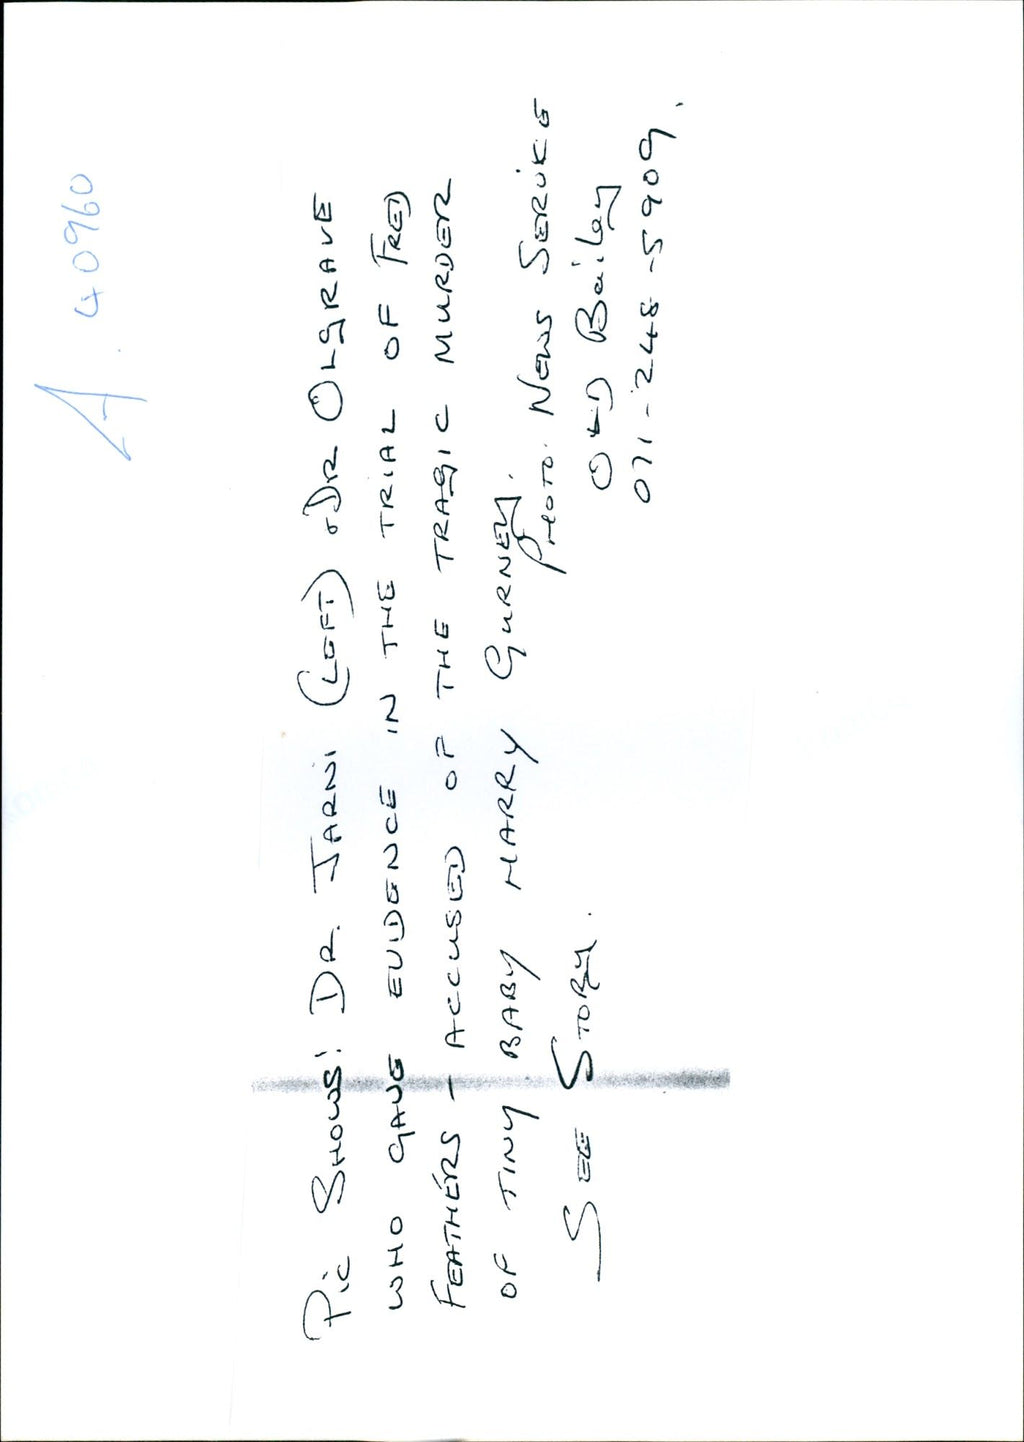 A. 40960
PIC SHOWS: DR. JARNI (LEFT) & DR OLGRAVE
WHO GAVE EVIDENCE IN THE TRIAL OF FRED
FEATHERS - ACCUSED OF THE TRAGIC MURDER
OF TINY BABY HARRY GURNEY.
SEE STORY.
PHOTO. NEWS SERVICE
OLD Bailey
071-248-5909.